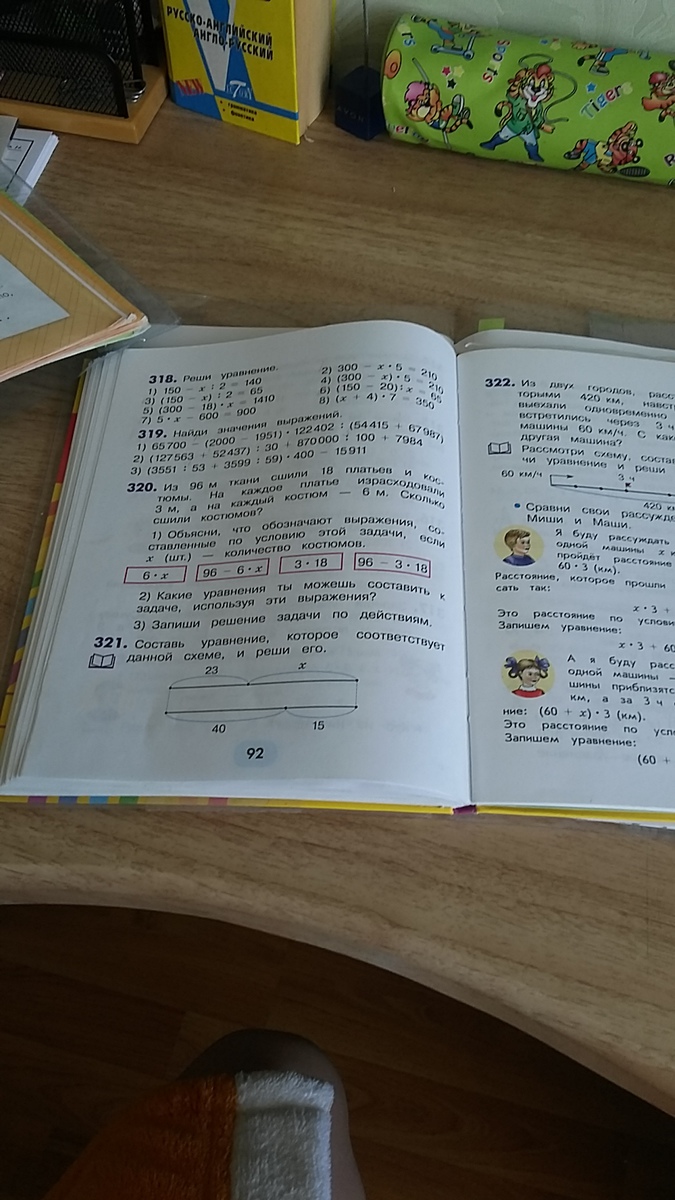 РУССКО-АНГЛИЙСКИЙ
АНГЛО-РУССКИЙ
NEW
• грамматика
• фонетика
AVON
Sports
Tigers
318. Реши уравнение.
1) 150 − x : 2 = 140
2) 300 − x · 5 = 210
3) (150 − x) : 2 = 65
4) (300 − x) · 5 = 210
5) (300 − 18) · x = 1410
6) (150 − 20) : x = 65
7) 5 · x − 600 = 900
8) (x + 4) · 7 = 350
319. Найди значения выражений.
1) 65 700 − (2000 − 1951) · 122 402 : (54 415 + 67 987)
2) (127 563 + 52 437) : 30 + 870 000 : 100 + 7984
3) (3551 : 53 + 3599 : 59) · 400 − 15 911
320. Из 96 м ткани сшили 18 платьев и кос-
тюмы. На каждое платье израсходовали
3 м, а на каждый костюм — 6 м. Сколько
сшили костюмов?
1) Объясни, что обозначают выражения, со-
ставленные по условию этой задачи, если
x (шт.) — количество костюмов.
6 · x
96 − 6 · x
3 · 18
96 − 3 · 18
2) Какие уравнения ты можешь составить к
задаче, используя эти выражения?
3) Запиши решение задачи по действиям.
321. Составь уравнение, которое соответствует
данной схеме, и реши его.
23 x
40 15
92
322. Из двух городов, расс
торыми 420 км, навст
выехали одновременно
встретились через 3 ч
машины 60 км/ч. С как
другая машина?
Рассмотри схему, состав
чи уравнение и реши
60 км/ч 3 ч
420 км
• Сравни свои рассужде
Миши и Маши.
Я буду рассуждать
одной машины x к
пройдёт расстояние
60 · 3 (км).
Расстояние, которое прошли
сать так:
x · 3 +
Это расстояние по услови
Запишем уравнение:
x · 3 + 60
А я буду расс
одной машины —
шины приблизятс
км, а за 3 ч
ние: (60 + x) · 3 (км).
Это расстояние по усл
Запишем уравнение:
(60 +